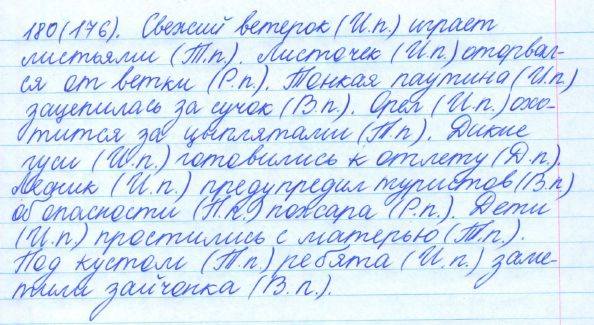 180(176). Свежий ветерок (И.п.) играет
листьями (Т.п.). Листочек (И.п.) оторвал-
ся от ветки (Р.п.). Тонкая паутина (И.п)
зацепилась за сучок (В.п). Орел (И.п.) охо-
тится за цыплятами (Т.п). Дикие
гуси (И.п.) готовились к отлету (Д.п).
Лесник (И.п.) предупредил туристов (В.п)
об опасности (П.п.) пожара (Р.п). Дети
(И.п) простились с матерью (Т.п).
Под кустом (Т.п) ребята (И.п.) заме-
тили зайчонка (В.п.).